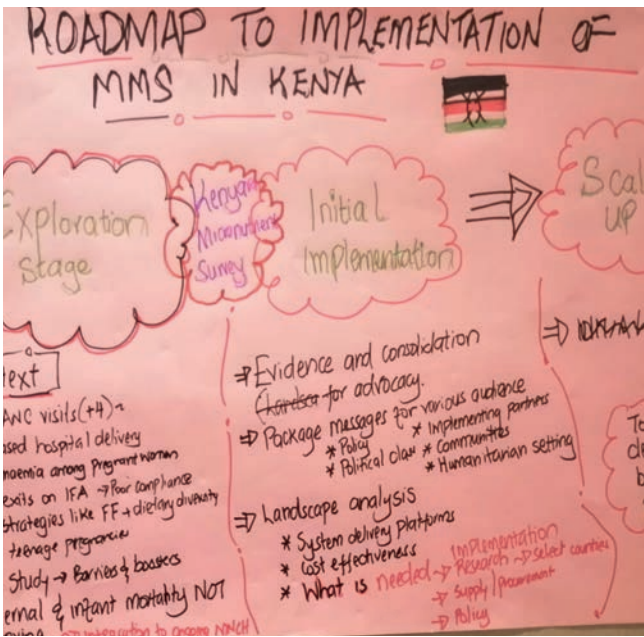 ROADMAP TO IMPLEMENTATION OF
MMS IN KENYA
Exploration
Stage
Kenyan
Micronutrient
Survey
Initial
Implementation
Scal
UP
text
ANC visits (+4)
ased hospital delivery
naemia among pregnant women
exits on IFA → Poor compliance
strategies like FF → dietary diversity
teenage pregnancies
Study → Barriers & boosters
ernal & infant mortality NOT
integration to ongoing
⇒ Evidence and consolidation
for advocacy.
⇒ Package messages for various audience
* Policy * Implementing partners
* Political class * Communities
* Humanitarian setting
⇒ Landscape analysis
* System delivery platforms
* Cost effectiveness
* What is needed → Implementation
Research → select counties
→ Supply/procurement
→ Policy
To
de
b